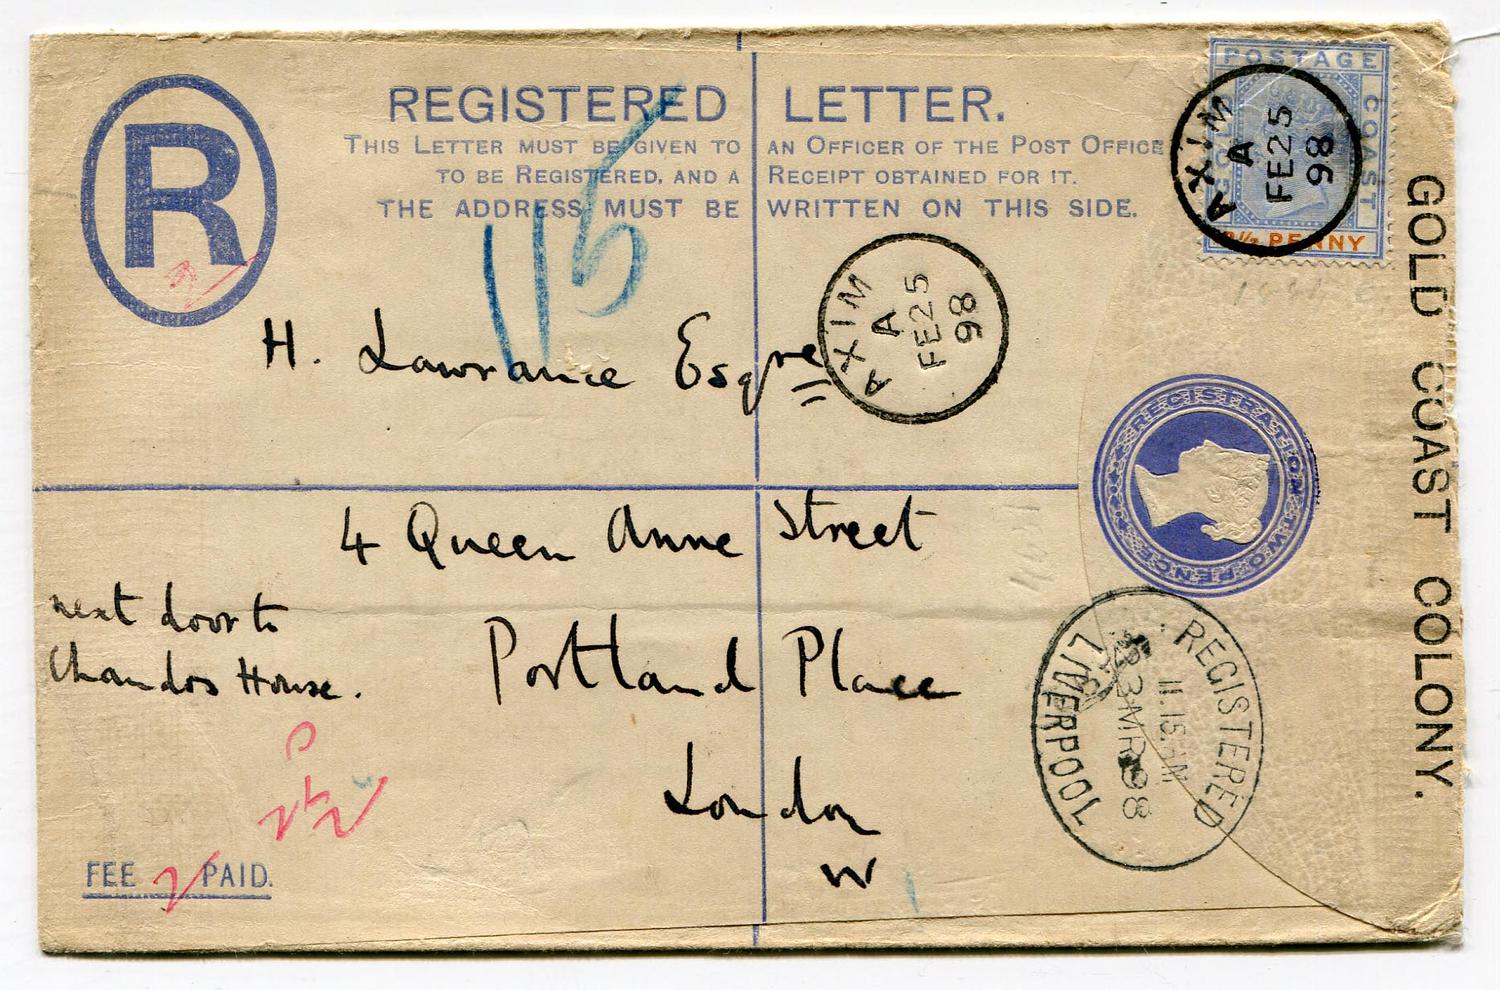 REGISTERED LETTER.
THIS LETTER MUST BE GIVEN TO AN OFFICER OF THE POST OFFICE
TO BE REGISTERED, AND A RECEIPT OBTAINED FOR IT.
THE ADDRESS MUST BE WRITTEN ON THIS SIDE.
R
115
POSTAGE
COAST
½ PENNY
AXIM
A
FE 25
98
AXIM
A
FE 25
98
GOLD COAST COLONY.
H. Lawrance Esqre
4 Queen Anne Street
next door to
Chandos House.
Portland Place
London
W
REGISTRATION
TWO PENCE
REGISTERED
11.15
23 MR 98
LIVERPOOL
FEE PAID.